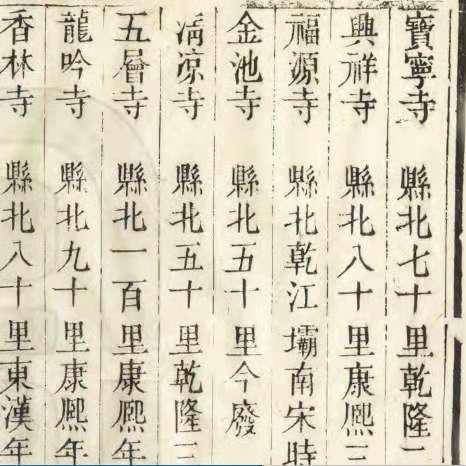 寶寧寺 縣北七十里乾隆
興祥寺 縣北八十里康熈三
福源寺 縣北乾江壩南宋時
金池寺 縣北五十里今廢
清凉寺 縣北五十里乾隆
五層寺 縣北一百里康熈年
龍吟寺 縣北九十里康熈年
香林寺 縣北八十里東漢年